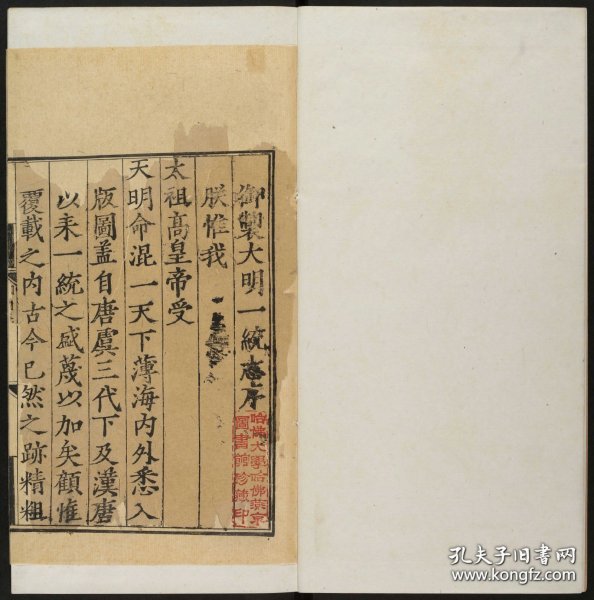 御製大明一統志序
朕惟我
太祖高皇帝受
天明命混一天下薄海内外悉入
版圖盖自唐虞三代下及漢唐
以来一統之盛蔑以加矣顧惟
覆載之内古今已然之跡精粗
哈佛大學哈佛燕京
圖書館珍藏印
孔夫子旧书网
www.kongfz.com